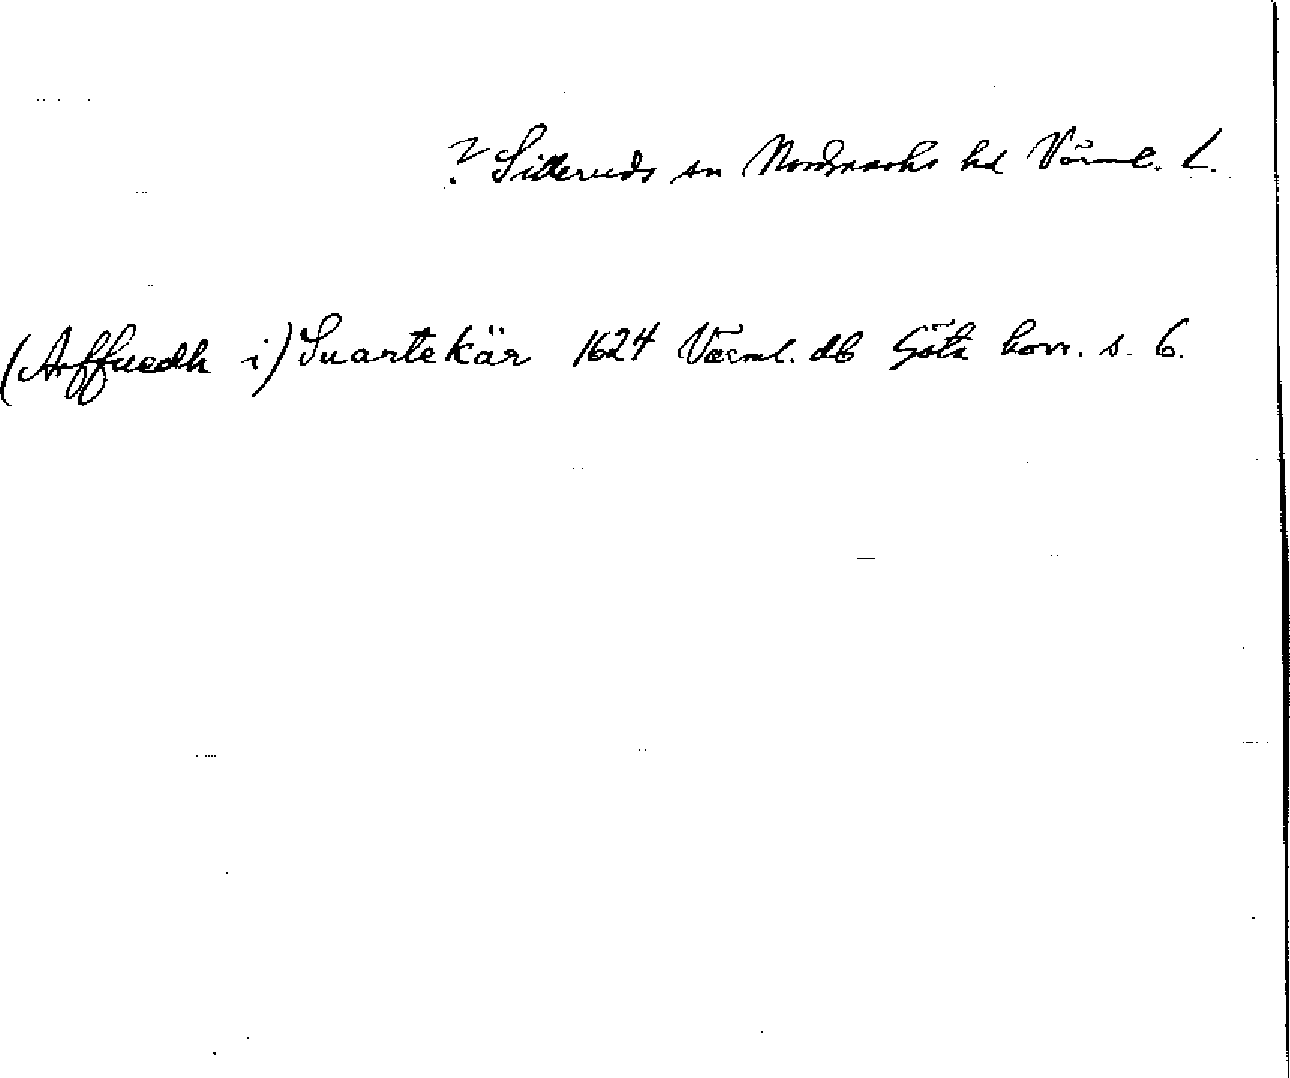 ? Silleruds sn Nordmarks hd Värml. l.
(Arffuedh i) Suartekär 1624 Värml. db Göta hovr. s. 6.